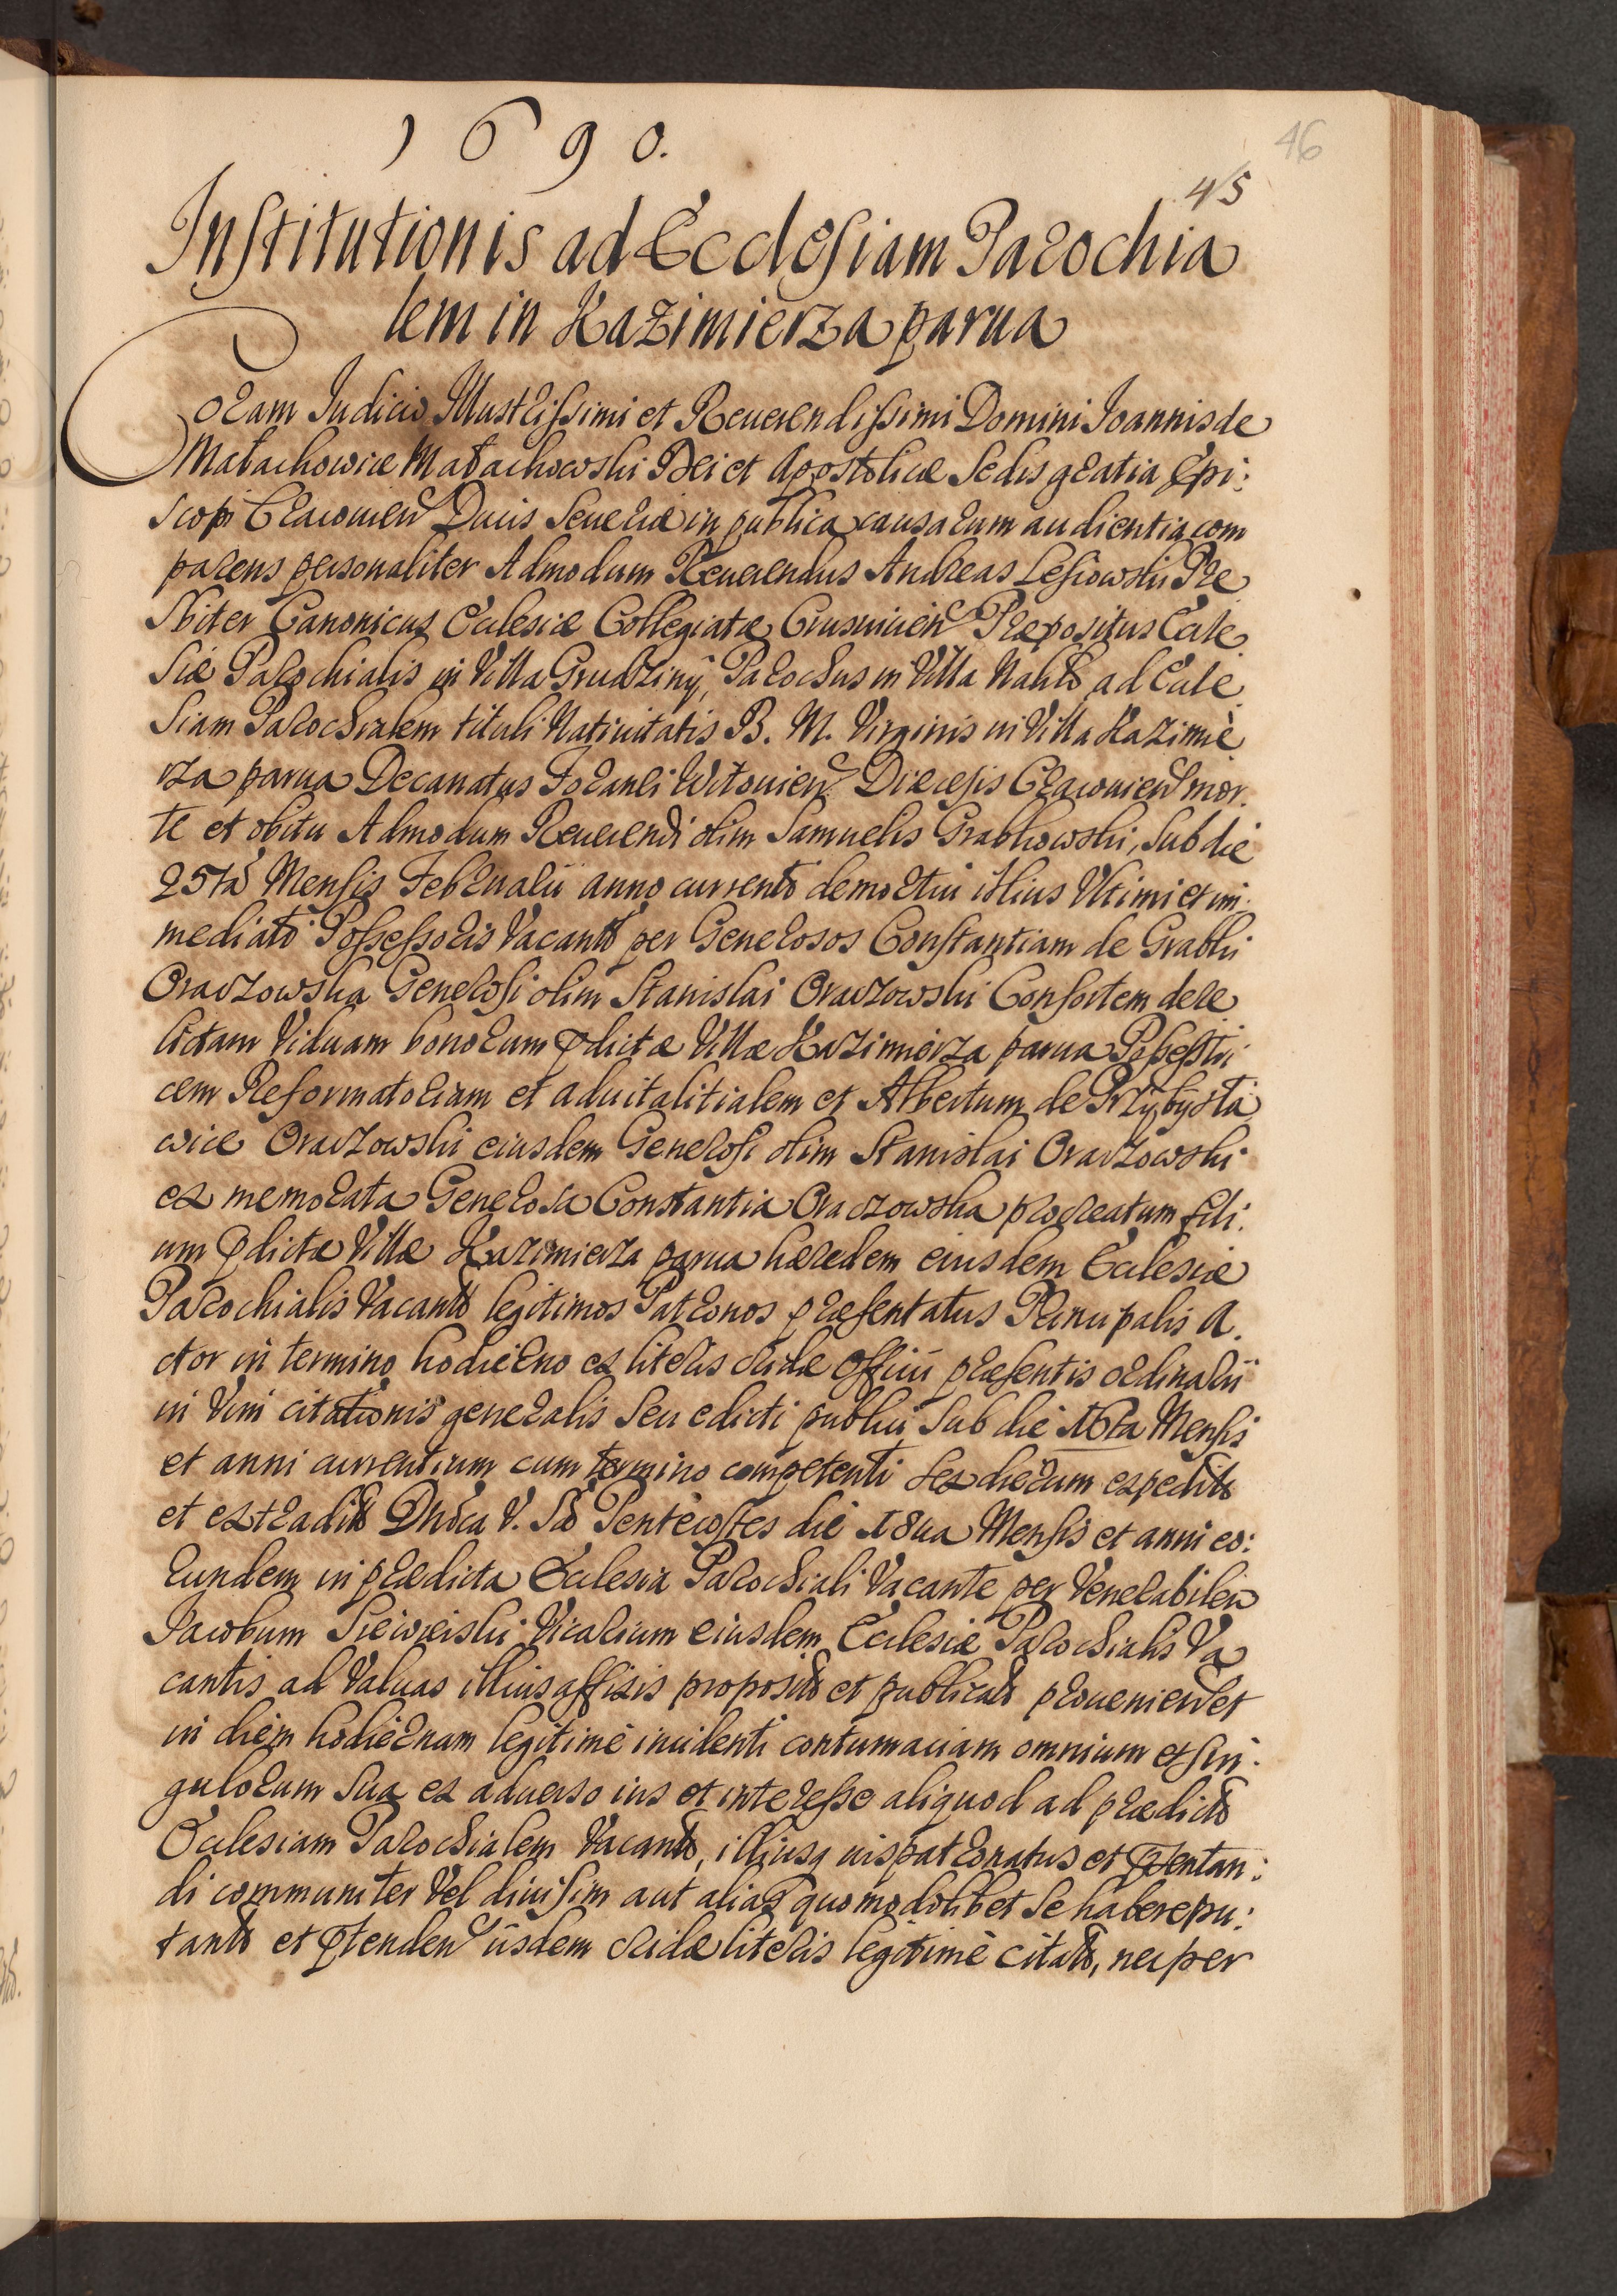 1690.
46
45
Institutionis ad Ecclesiam Parochia
lem in Kazimierza parua
Coram Judicio Illustrissimi et Reuerendissimi Domini Joannis de
Małachowice Małachowski Dei et Apostolicæ Sedis gratia Epi:
scopi Cracouien Ducis Seueriæ in publica causarum audientia com
parens personaliter Admodum Reuerendus Andreas Lesiowski Pre
sbiter Canonicus Ecclesiæ Collegiatæ Crusuicien Præpositus Eccle
siæ Parochialis in Villa Grudziny, Parochus in Villa ad Eccle
siam Parochialem tituli Natiuitatis B. M. Virginis in Villa Kazimie
rza parua Decanatus Foranei Witouien Diæcesis Cracouien mor
te et obitu Admodum Reuerendi olim Samuelis Grabkowski, sub die
25ta Mensis Februarii anno currento demortui illius Vltimi et im
mediato Possessoris Vacanto per Generosos Constantiam de Grabki
Oraczowska Generosi olim Stanislai Oraczowski Consortem dere
lictam Viduam bonorum pdictæ Villæ Kazimierza parua Possestri
cem Reformatoriam et aduitalitialem et Albertum de Przybysła
wice Oraczowski eiusdem Generosi olim Stanislai Oraczowski
ex memorata Generosa Constantia Oraczowska procreatum fili:
um pdictæ Villæ Kazimierza parua hæredem eiusdem Ecclesiæ
Parochialis Vacanto legitimos Patronos præsentatus Principalis A
ctor in termino hodierno ex literis cridæ Officii præsentis ordinarii
in Vim citationis generalis seu edicti publici sub die 16ta Mensis
et anni currentium cum termino competenti sex dierum expedito
et extradito Dnica V. Sto Pentecostes die 18ua Mensis et anni eo:
rundem in prædicta Ecclesia Parochiali Vacante per Venerabilem
Jacobum Vicarium eiusdem Ecclesiæ Parochialis Va
cantis ad Valuas illius affixis proposito et publicato prouenien et
in diem hodiernam legitime incidenti contumaciam omnium et sin
gulorum sua ex aduerso ius et interesse aliquod ad prædicto
Ecclesiam Parochialem Vacanto, illiusq iuspatronatus et pntan:
di communiter Vel diuisim aut alias quomodolibet se habere pu:
tanto et ptenden iisdem cridæ literis legitime citato, nec per